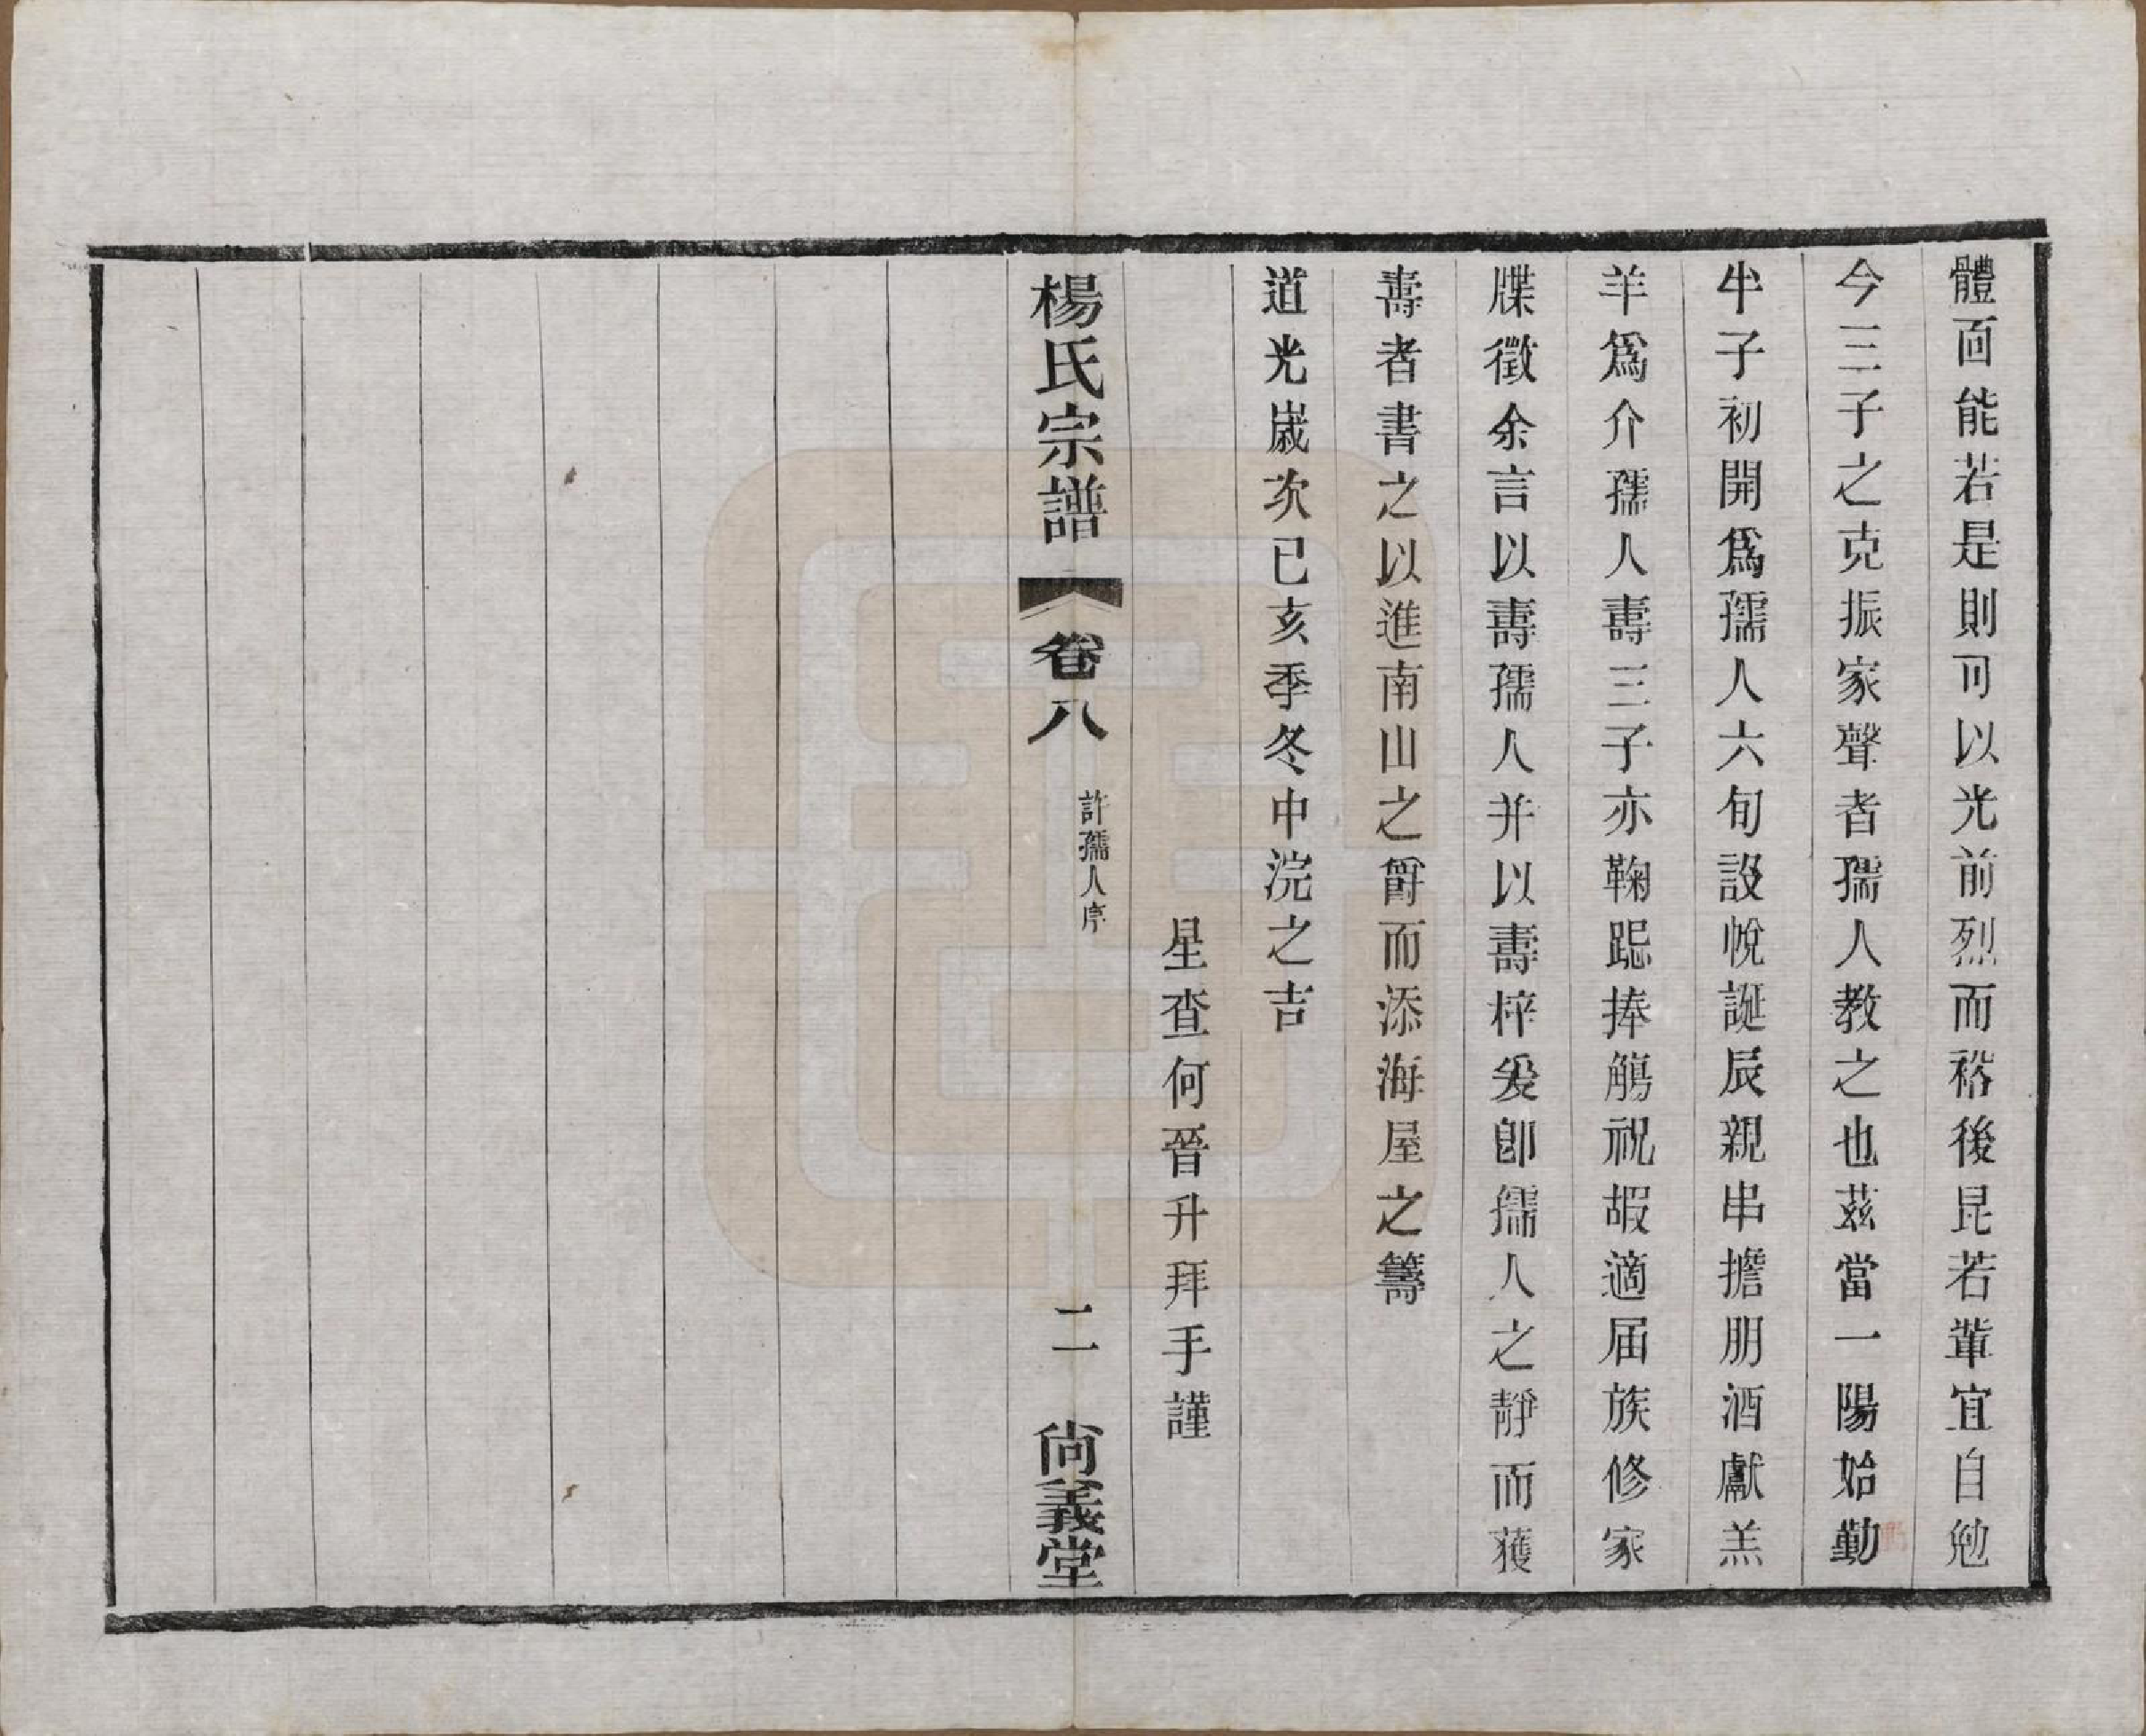 體而能若是則可以光前烈而裕後昆若輩宜自勉
今三子之克振家聲者孺人教之也茲當一陽始動
牛子初開爲孺人六旬設帨誕辰親串擔朋酒獻羔
羊爲介孺人壽三子亦鞠跽捧觴祝嘏適届族修家
牒徵余言以壽孺人并以壽梓爰卽孺人之靜而獲
壽者書之以進南山之爵而添海屋之籌
道光嵗次己亥季冬中浣之吉
星查何晉升拜手謹
楊氏宗譜
卷八
許孺人序
二
尙義堂